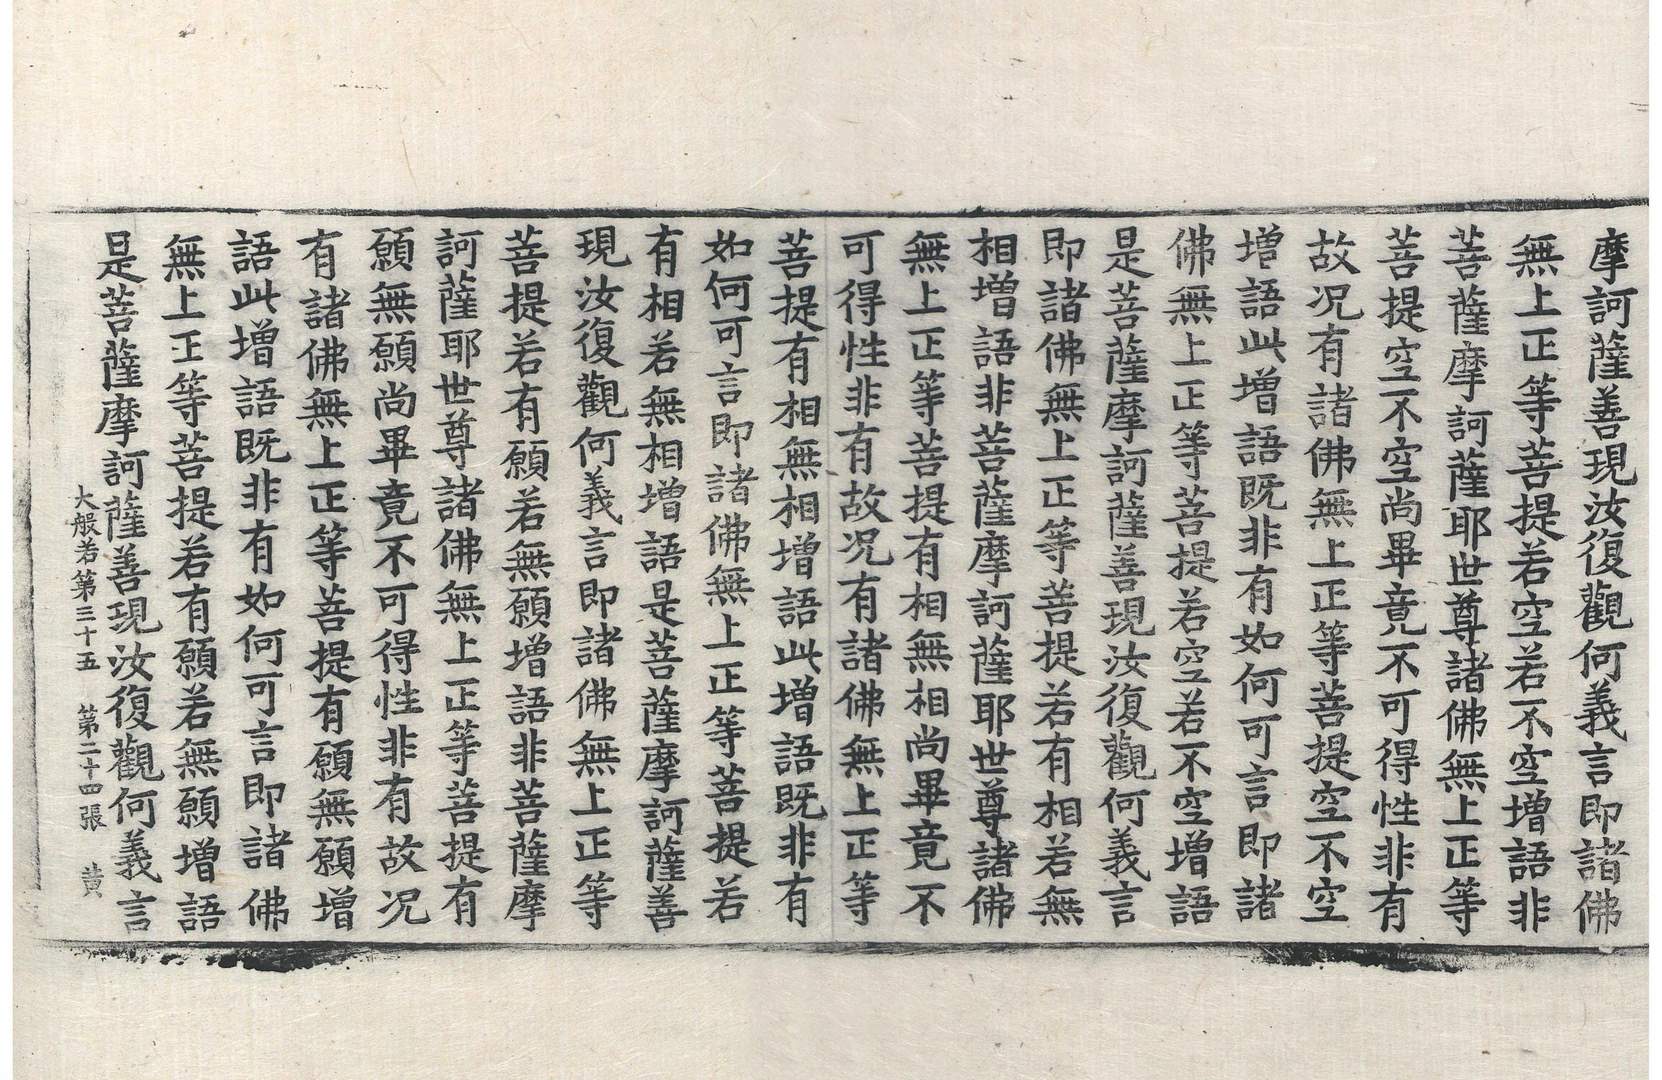 摩訶薩善現汝復觀何義言即諸佛
無上正等菩提若空若不空增語非
菩薩摩訶薩耶世尊諸佛無上正等
菩提空不空尚畢竟不可得性非有
故况有諸佛無上正等菩提空不空
增語此增語既非有如何可言即諸
佛無上正等菩提若空若不空增語
是菩薩摩訶薩善現汝復觀何義言
即諸佛無上正等菩提若有相若無
相增語非菩薩摩訶薩耶世尊諸佛
無上正等菩提有相無相尚畢竟不
可得性非有故况有諸佛無上正等
菩提有相無相增語此增語既非有
如何可言即諸佛無上正等菩提若
有相若無相增語是菩薩摩訶薩善
現汝復觀何義言即諸佛無上正等
菩提若有願若無願增語非菩薩摩
訶薩耶世尊諸佛無上正等菩提有
願無願尚畢竟不可得性非有故况
有諸佛無上正等菩提有願無願增
語此增語既非有如何可言即諸佛
無上正等菩提若有願若無願增語
是菩薩摩訶薩善現汝復觀何義言
大般若第三十五 第二十四張 黄